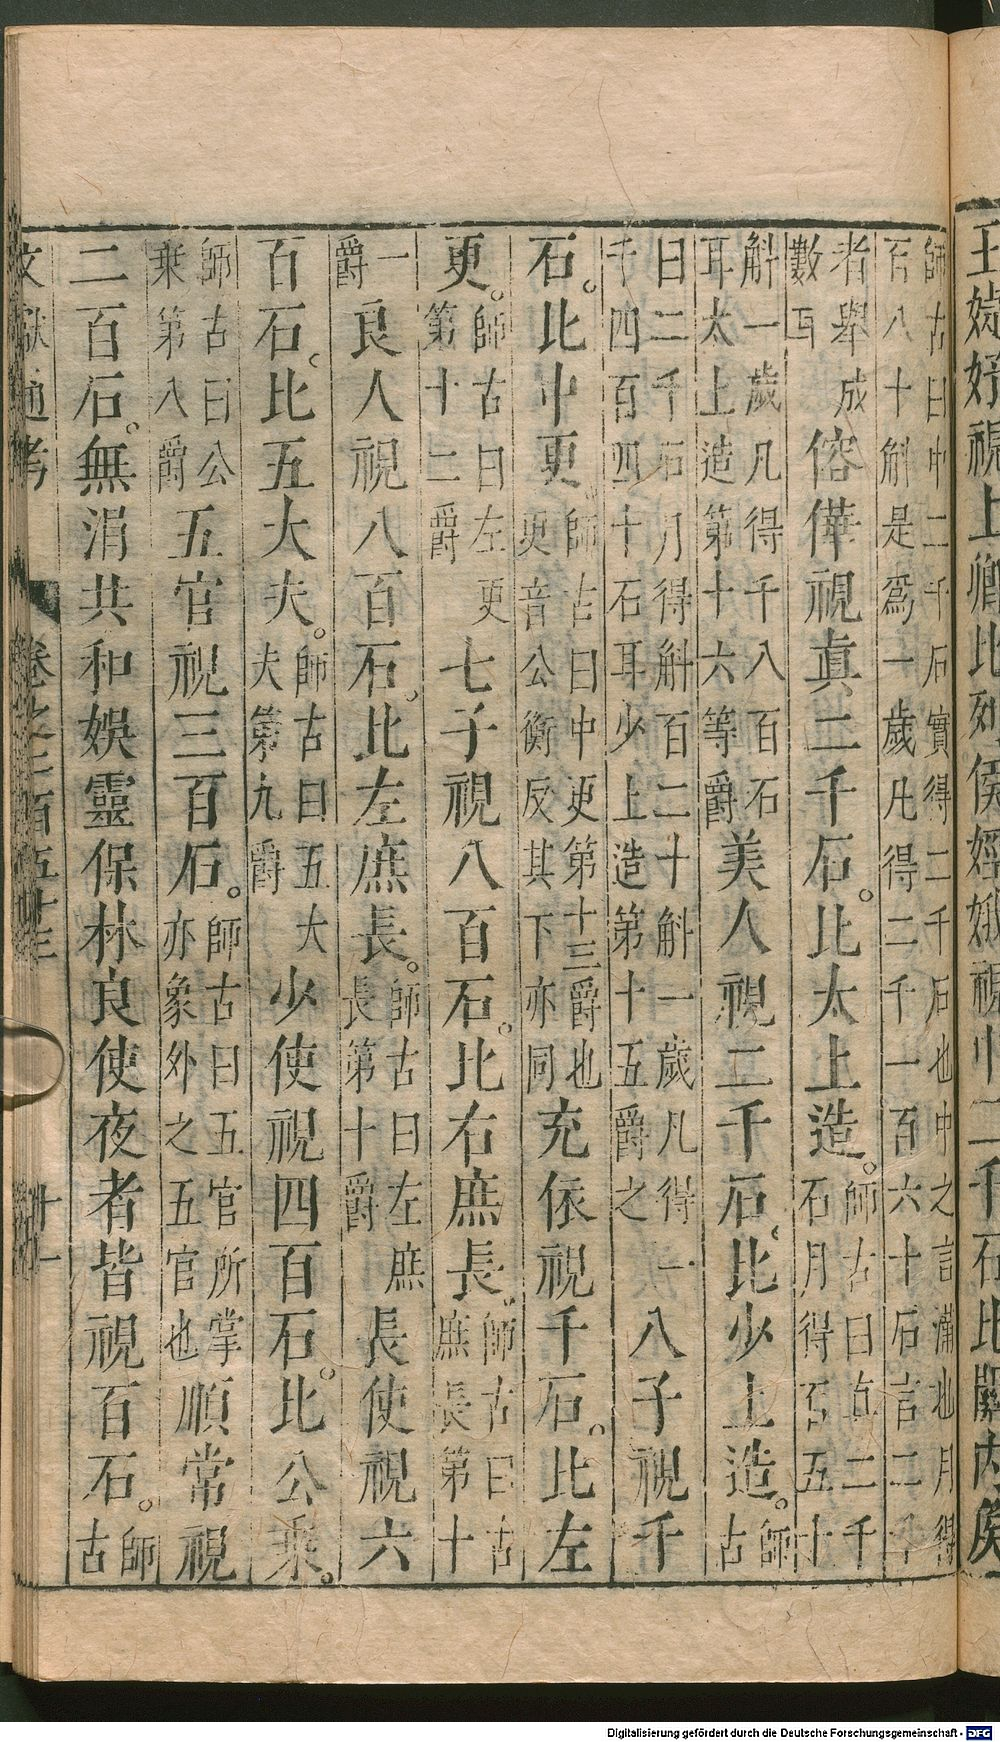 王婕妤視上卿比列侯婬娥視中二千石比關內侯
師古曰中二千石實得二千石也中之言滿也月得
百八十斛是爲一歲凡得二千一百六十石言二千
者舉成數耳傛華視眞二千石。比太上造。師古曰真二千石月得百五十
斛一歲凡得千八百石耳太上造第十六等爵美人視二千石。比少上造。師古
曰二千石月得斛百二十斛一歲凡得一千四百四十石耳少上造第十五爵之八子視千
石。比中更。師古曰中更第十三爵也更音公衡反其下亦同充依視千石。比左
更。師古曰左更第十二爵七子視八百石。比右庶長。師古曰古庶長第十
一爵良人視八百石。比左庶長。師古曰左庶長第十爵長使視六
百石。比五大夫。師古曰五大夫第九爵少使視四百石。比公乘。
師古曰公乘第八爵五官視三百石。師古曰五官所掌亦象外之五官也順常視
二百石。無涓共和娛靈保林良使夜者皆視百石。師古
文獻通考 卷之二百五十三 十一
Digitalisierung gefördert durch die Deutsche Forschungsgemeinschaft - DFG